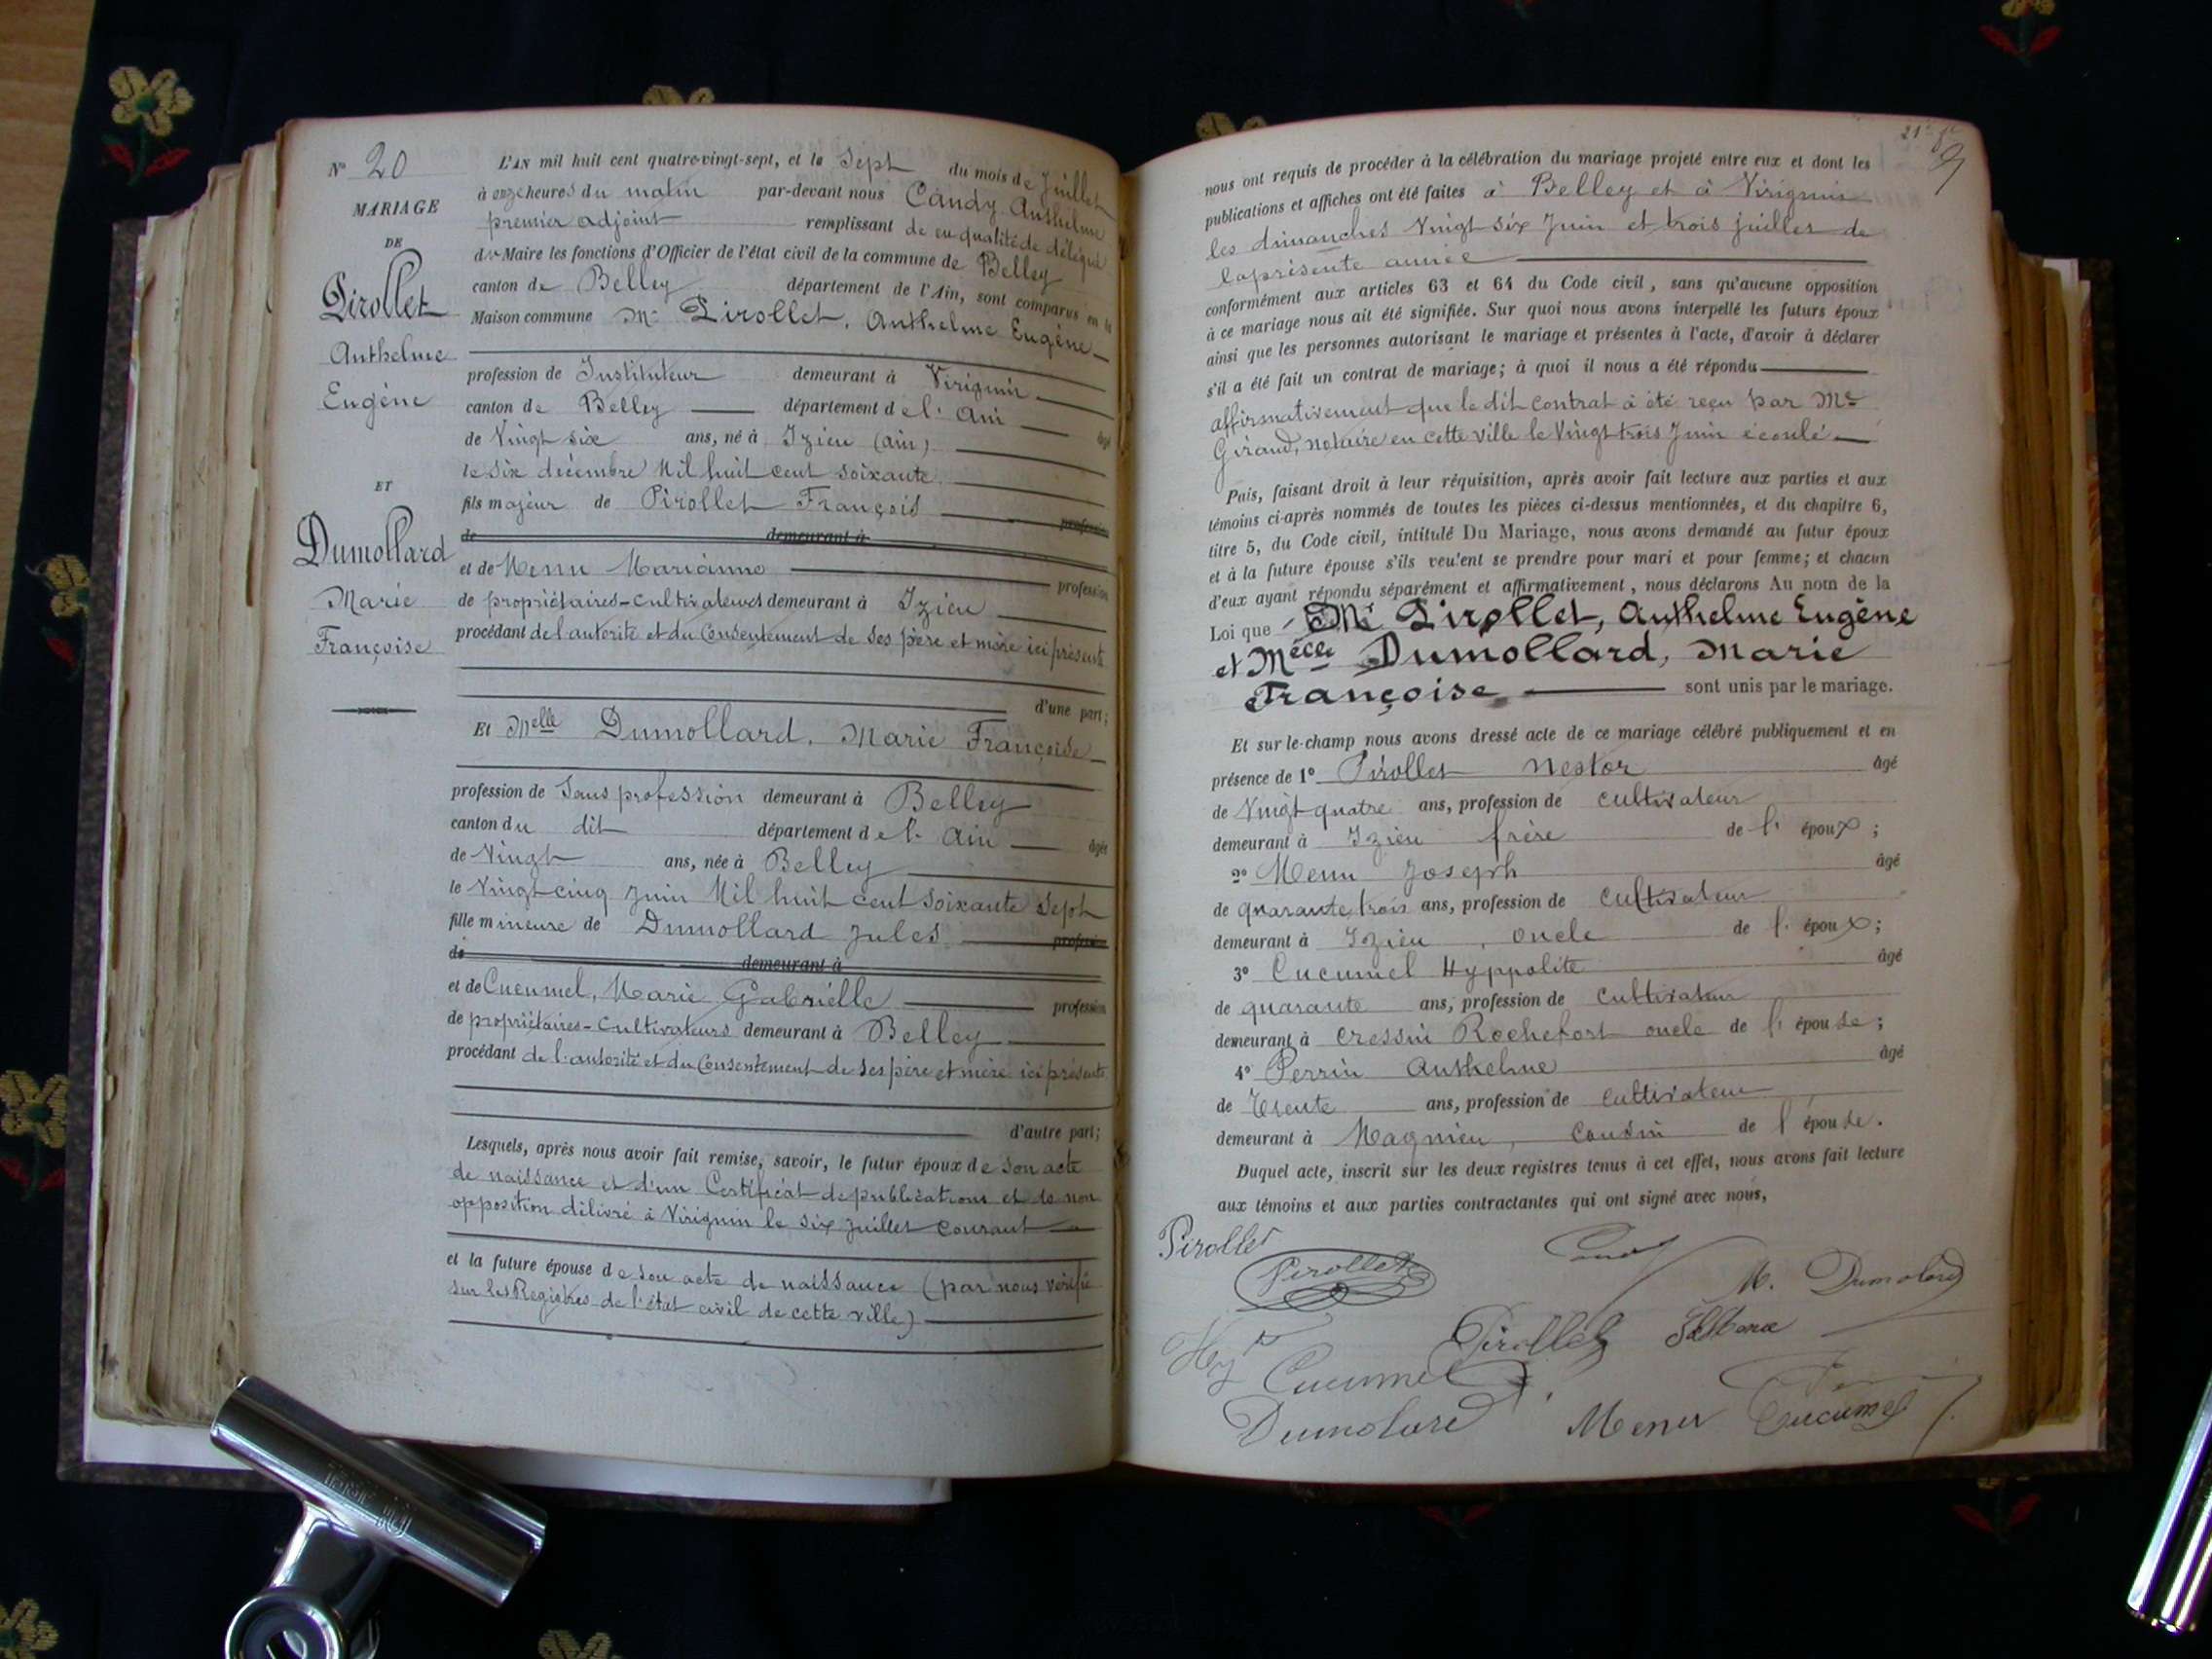 N° 20
MARIAGE
DE
Pirollet
Anthelme
Eugène
ET
Dumollard
Marie
Françoise
L'AN mil huit cent quatre-vingt-sept, et le Sept du mois de Juillet
à onze heures du matin par-devant nous Candy Anthelme
premier adjoint remplissant de en qualité de délégué
du Maire les fonctions d'Officier de l'état civil de la commune de Belley
canton de Belley département de l'Ain, sont comparus en la
Maison commune Mr Pirollet, Anthelme Eugène
profession de Instituteur demeurant à Virignin
canton de Belley département de l'Ain âgé
de Vingt six ans, né à Izieu (ain)
le Six décembre Mil huit cent soixante
fils majeur de Pirollet François profession
de demeurant à
et de Menu Marianne profession
de propriétaires-cultivateurs demeurant à Izieu
procédant de l'autorité et du Consentement de ses père et mère ici présents
d'une part;
Et Melle Dumollard, Marie Françoise
profession de Sans profession demeurant à Belley
canton du dit département de l'Ain âgée
de Vingt ans, née à Belley
le Vingt-cinq Juin Mil huit cent Soixante Sept
fille mineure de Dumollard Jules profession
de demeurant à
et de Cucumel, Marie Gabrielle profession
de propriétaires-Cultivateurs demeurant à Belley
procédant de l'autorité et du Consentement de ses père et mère ici présents
d'autre part;
Lesquels, après nous avoir fait remise, savoir, le futur époux de son acte
de naissance et d'un Certificat de publications et de non
opposition délivré à Virignin le six Juillet courant
et la future épouse de son acte de naissance (par nous vérifié
sur les Registres de l'état civil de cette ville)
nous ont requis de procéder à la célébration du mariage projeté entre eux et dont les
publications et affiches ont été faites à Belley et à Virignin
les dimanches Vingt six Juin et trois juillet de
la présente année
conformément aux articles 63 et 64 du Code civil, sans qu'aucune opposition
à ce mariage nous ait été signifiée. Sur quoi nous avons interpellé les futurs époux
ainsi que les personnes autorisant le mariage et présentes à l'acte, d'avoir à déclarer
s'il a été fait un contrat de mariage; à quoi il nous a été répondu
affirmativement que le dit contrat à été reçu par Me
Giraud, notaire en cette ville le Vingt trois Juin écoulé
Puis, faisant droit à leur réquisition, après avoir fait lecture aux parties et aux
témoins ci-après nommés de toutes les pièces ci-dessus mentionnées, et du chapitre 6,
titre 5, du Code civil, intitulé Du Mariage, nous avons demandé au futur époux
et à la future épouse s'ils veulent se prendre pour mari et pour femme; et chacun
d'eux ayant répondu séparément et affirmativement, nous déclarons Au nom de la
Loi que Mr Pirollet, Anthelme Eugène
et Melle Dumollard, Marie
Françoise sont unis par le mariage.
Et sur-le-champ nous avons dressé acte de ce mariage célébré publiquement et en
présence de 1° Pirollet Nestor âgé
de Vingt quatre ans, profession de cultivateur
demeurant à Izieu frère de l'époux;
2° Menu Joseph âgé
de quarante trois ans, profession de cultivateur
demeurant à Izieu, oncle de l'époux;
3° Cucumel Hyppolite âgé
de quarante ans, profession de cultivateur
demeurant à Cressin Rochefort oncle de l'épouse;
4° Perrin Anthelme âgé
de Trente ans, profession de cultivateur
demeurant à Magnieu, Cousin de l'épouse.
Duquel acte, inscrit sur les deux registres tenus à cet effet, nous avons fait lecture
aux témoins et aux parties contractantes qui ont signé avec nous,
Pirollet
Pirollet
M. Dumolard
Pirollet
Cucumel
Dumolard Menu Cucumel